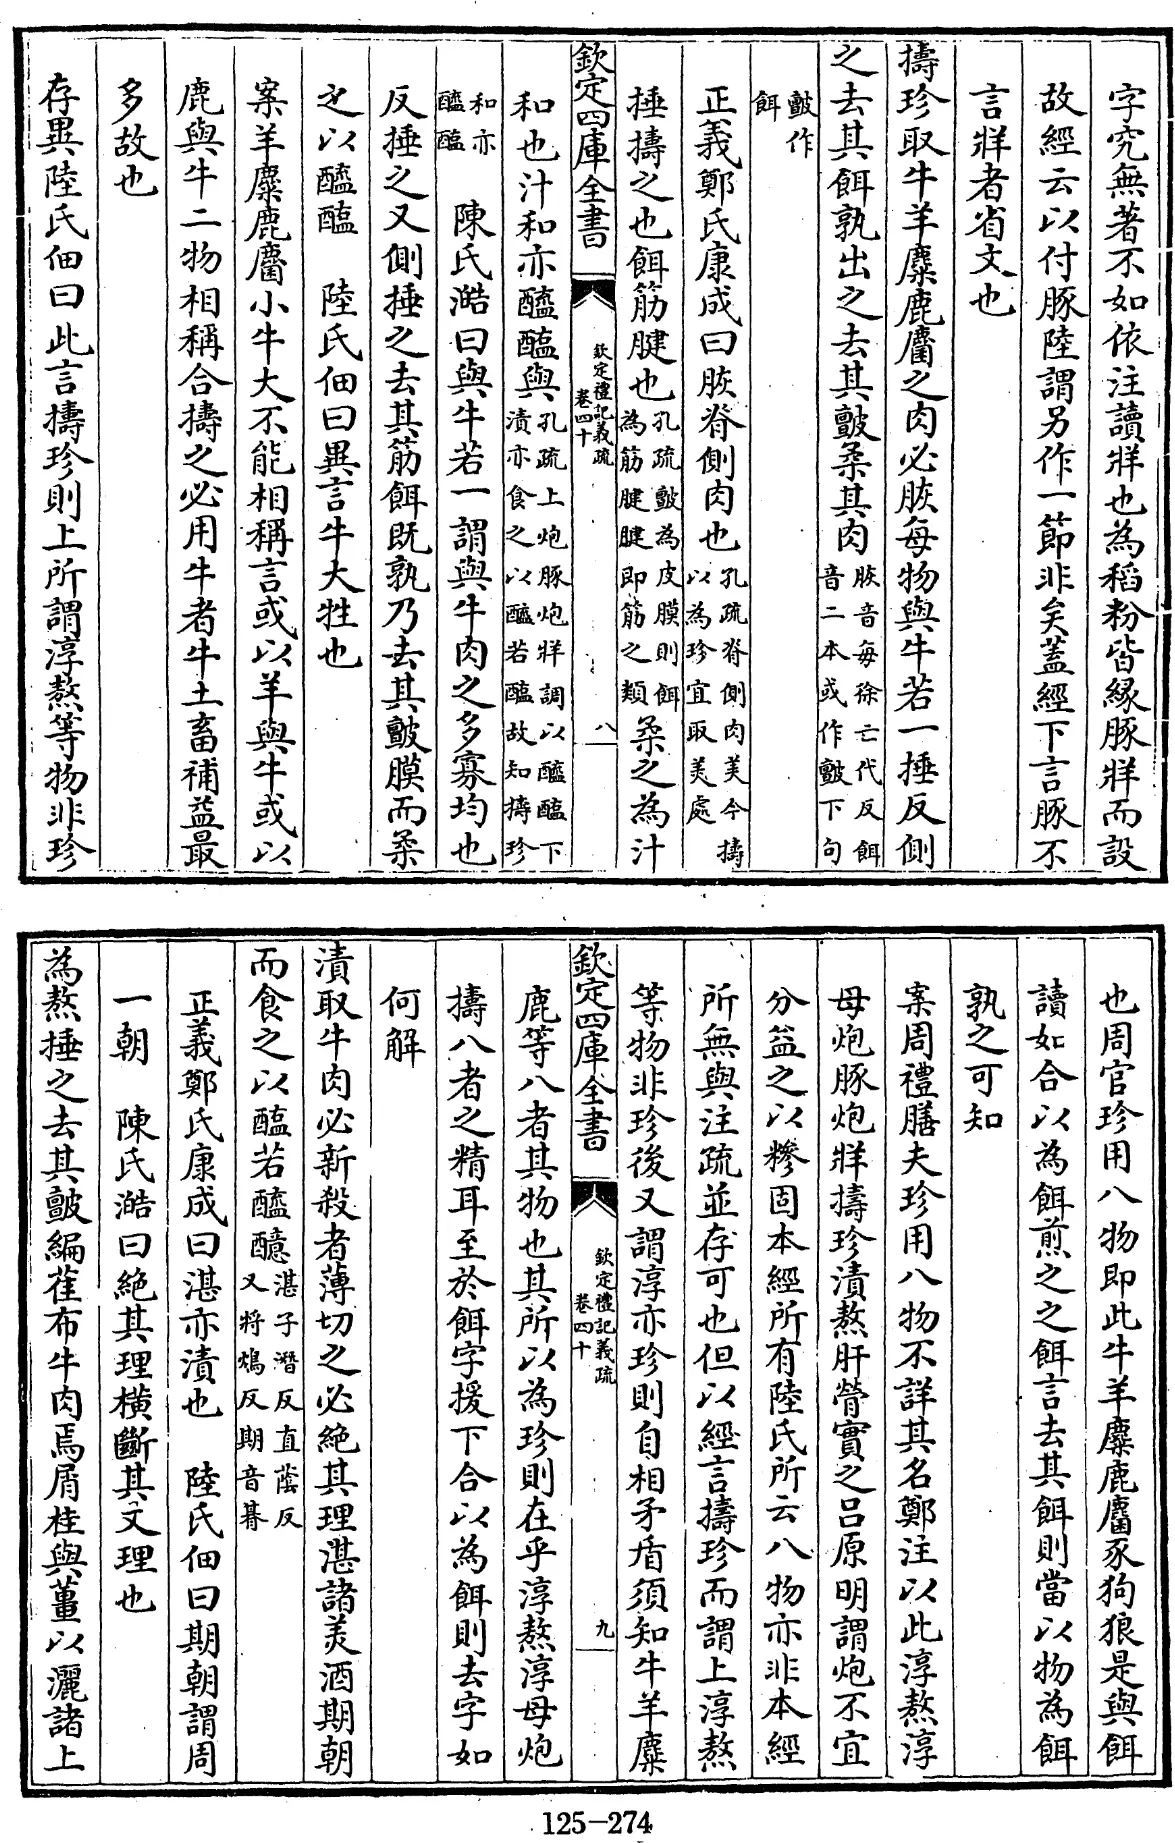 字究無著不如依注讀牂也為稻粉皆緣豚牂而設
故經云以付豚陸謂另作一節非矣蓋經下言豚不
言牂者省文也
擣珍取牛羊麋鹿麕之肉必脄每物與牛若一捶反側
之去其餌孰出之去其皽柔其肉脄音每徐亡代反餌
音二本或作皽下句
皽作
餌
正義鄭氏康成曰脄脊側肉也孔疏脊側肉美今擣
以為珍宜取美處
捶擣之也餌筋腱也孔疏皽為皮膜則餌
為筋腱腱即筋之類柔之為汁
欽定四庫全書
欽定禮記義疏
卷四十
八
和也汁和亦醯醢與孔疏上炮豚炮牂調以醯醢下
漬亦食之以醯若醢故知擣珍
和亦
醯醢 陳氏澔曰與牛若一謂與牛肉之多寡均也
反捶之又側捶之去其筋餌既孰乃去其皽膜而柔
之以醯醢 陸氏佃曰異言牛大牲也
案羊麋鹿麕小牛大不能相稱言或以羊與牛或以
鹿與牛二物相稱合擣之必用牛者牛土畜補益最
多故也
存異陸氏佃曰此言擣珍則上所謂淳熬等物非珍
也周官珍用八物即此牛羊麋鹿麕豕狗狼是與餌
讀如合以為餌煎之之餌言去其餌則當以物為餌
孰之可知
案周禮膳夫珍用八物不詳其名鄭注以此淳熬淳
母炮豚炮牂擣珍漬熬肝膋實之呂原明謂炮不宜
分益之以糝固本經所有陸氏所云八物亦非本經
所無與注疏並存可也但以經言擣珍而謂上淳熬
等物非珍後又謂淳亦珍則自相矛盾須知牛羊麋
欽定四庫全書
欽定禮記義疏
卷四十
九
鹿等八者其物也其所以為珍則在乎淳熬淳母炮
擣八者之精耳至於餌字援下合以為餌則去字如
何解
漬取牛肉必新殺者薄切之必絶其理湛諸美酒期朝
而食之以醢若醯醷湛子潛反直蔭反
又將鴆反期音朞
正義鄭氏康成曰湛亦漬也 陸氏佃曰期朝謂周
一朝 陳氏澔曰絶其理橫斷其文理也
為熬捶之去其皽編萑布牛肉焉屑桂與薑以灑諸上
125-274